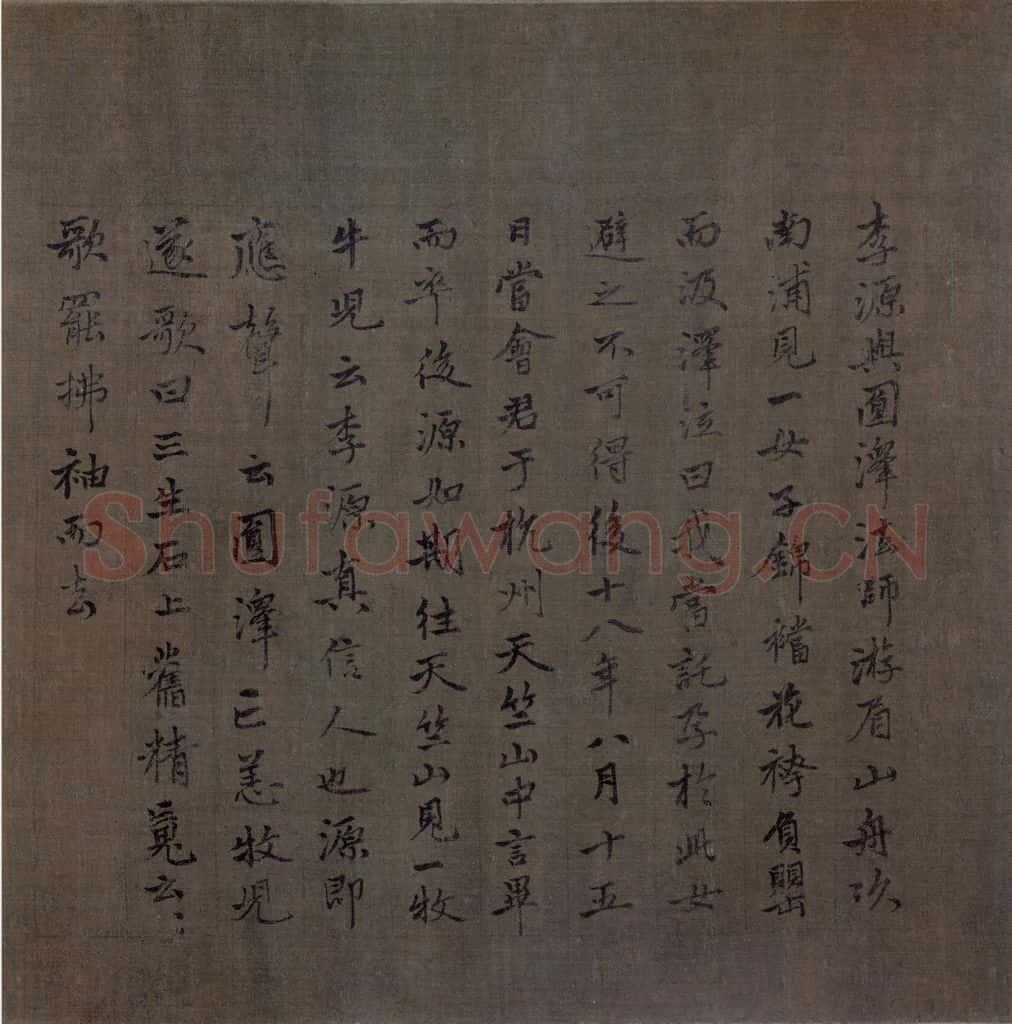 李源與圓澤法師游眉山舟次
南浦見一女子錦襠花袴負罌
而汲澤泣曰我當託孕於此女
避之不可得後十八年八月十五
日當會君于杭州天竺山中言畢
而卒後源如期往天竺山見一牧
牛児云李源真信人也源即
應聲云圓澤已恙牧児
遂歌曰三生石上舊精䰟云〻
歌罷拂袖而去
Shufawang.CN